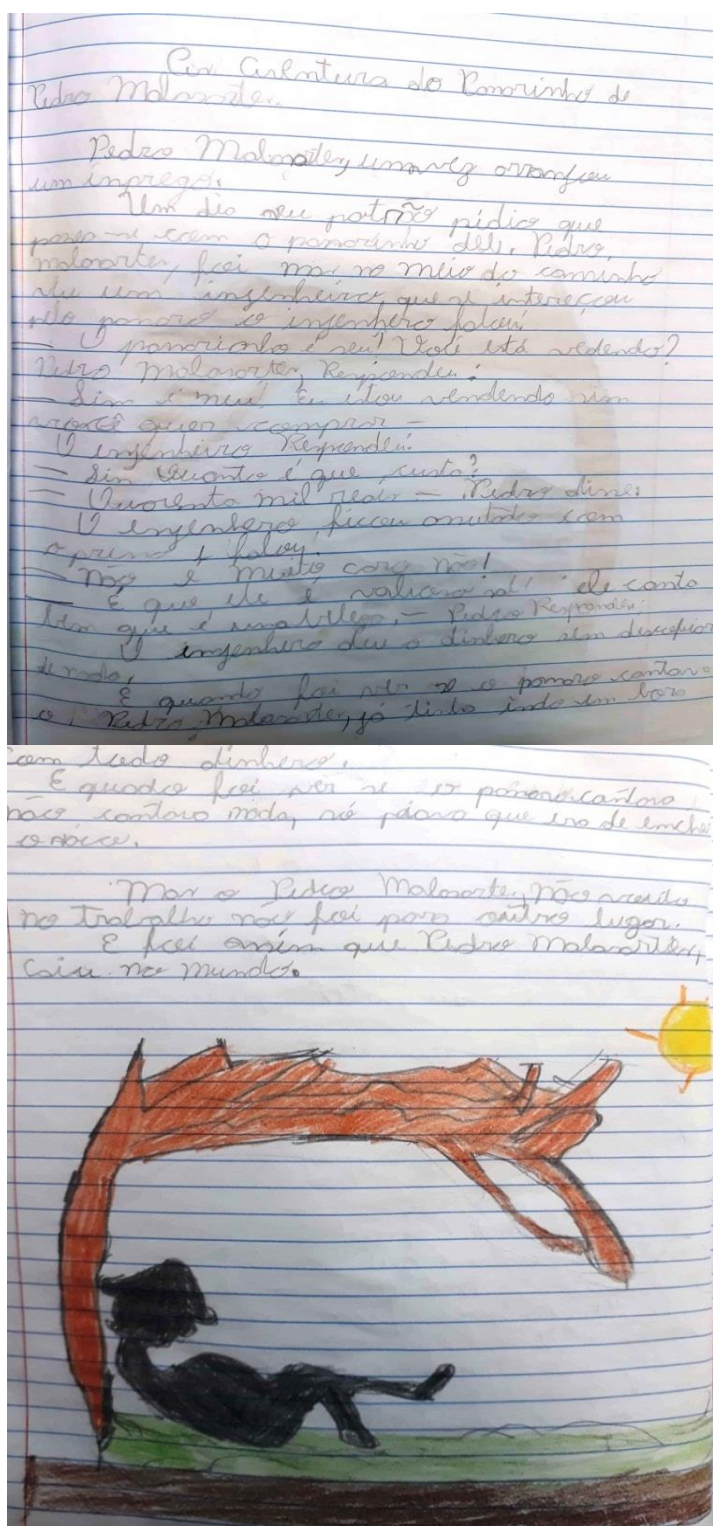 Aventura do Panarinho de
Pedro Malasartes.
Pedro Malasartes, uma vez arranjou
um inprego.
Um dia seu patrão pidio que
com o panarinho dele. Pedro,
malasartes, foi mas no meio do caminho
viu um ingenheiro, que se intereçou
pelo panaro e o ingenhero falou:
— O panarinho é seu? Você está vedendo?
Pedro Malasartes, Respondeu:
— Sim é meu! Eu estou vendendo sim
você quer comprar —
O ingenheiro Respondeu:
— Sin Quanto é que custa?
— Quarenta mil reais — Pedro disse:
O engenhero, ficou com
o preso e falou:
— Não é muito caro não!
— É que ele é valioso ele canta
bem que é uma beleza, — Pedro Respondeu:
O ingenhero deu o dinhero sem
de nada,
E quando foi ver se o panaro cantava
o Pedro Malasartes, já tinha indo em bora
com tudo dinhero.
E quado foi ver se o panaro cantava
não cantava nada, só piava que era de encher
o
Mas o Pedro Malasartes, não
no trabalho não foi para outro lugar.
E foi assim que Pedro Malasartes,
Caiu no mundo.